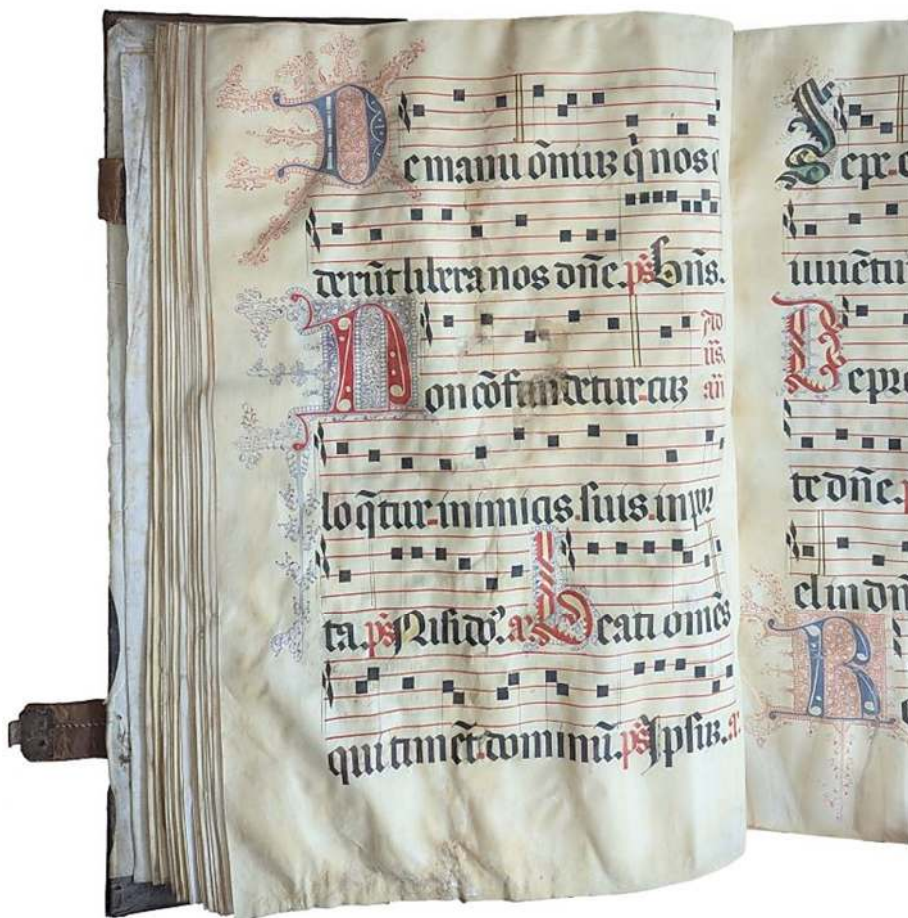 De manu õmiuz q̃ nos o
derũt libera nos dñe. ps Bñs.
Non cõfundetur cuz
loq̃tur inimicis suis in por
ta. ps Nisi dõ. a Beati omẽs
qui timẽt dominũ. ps Ipsuz. a
Sepe e
iuuẽtu
De pro
te dñe. p
el in dñ
R